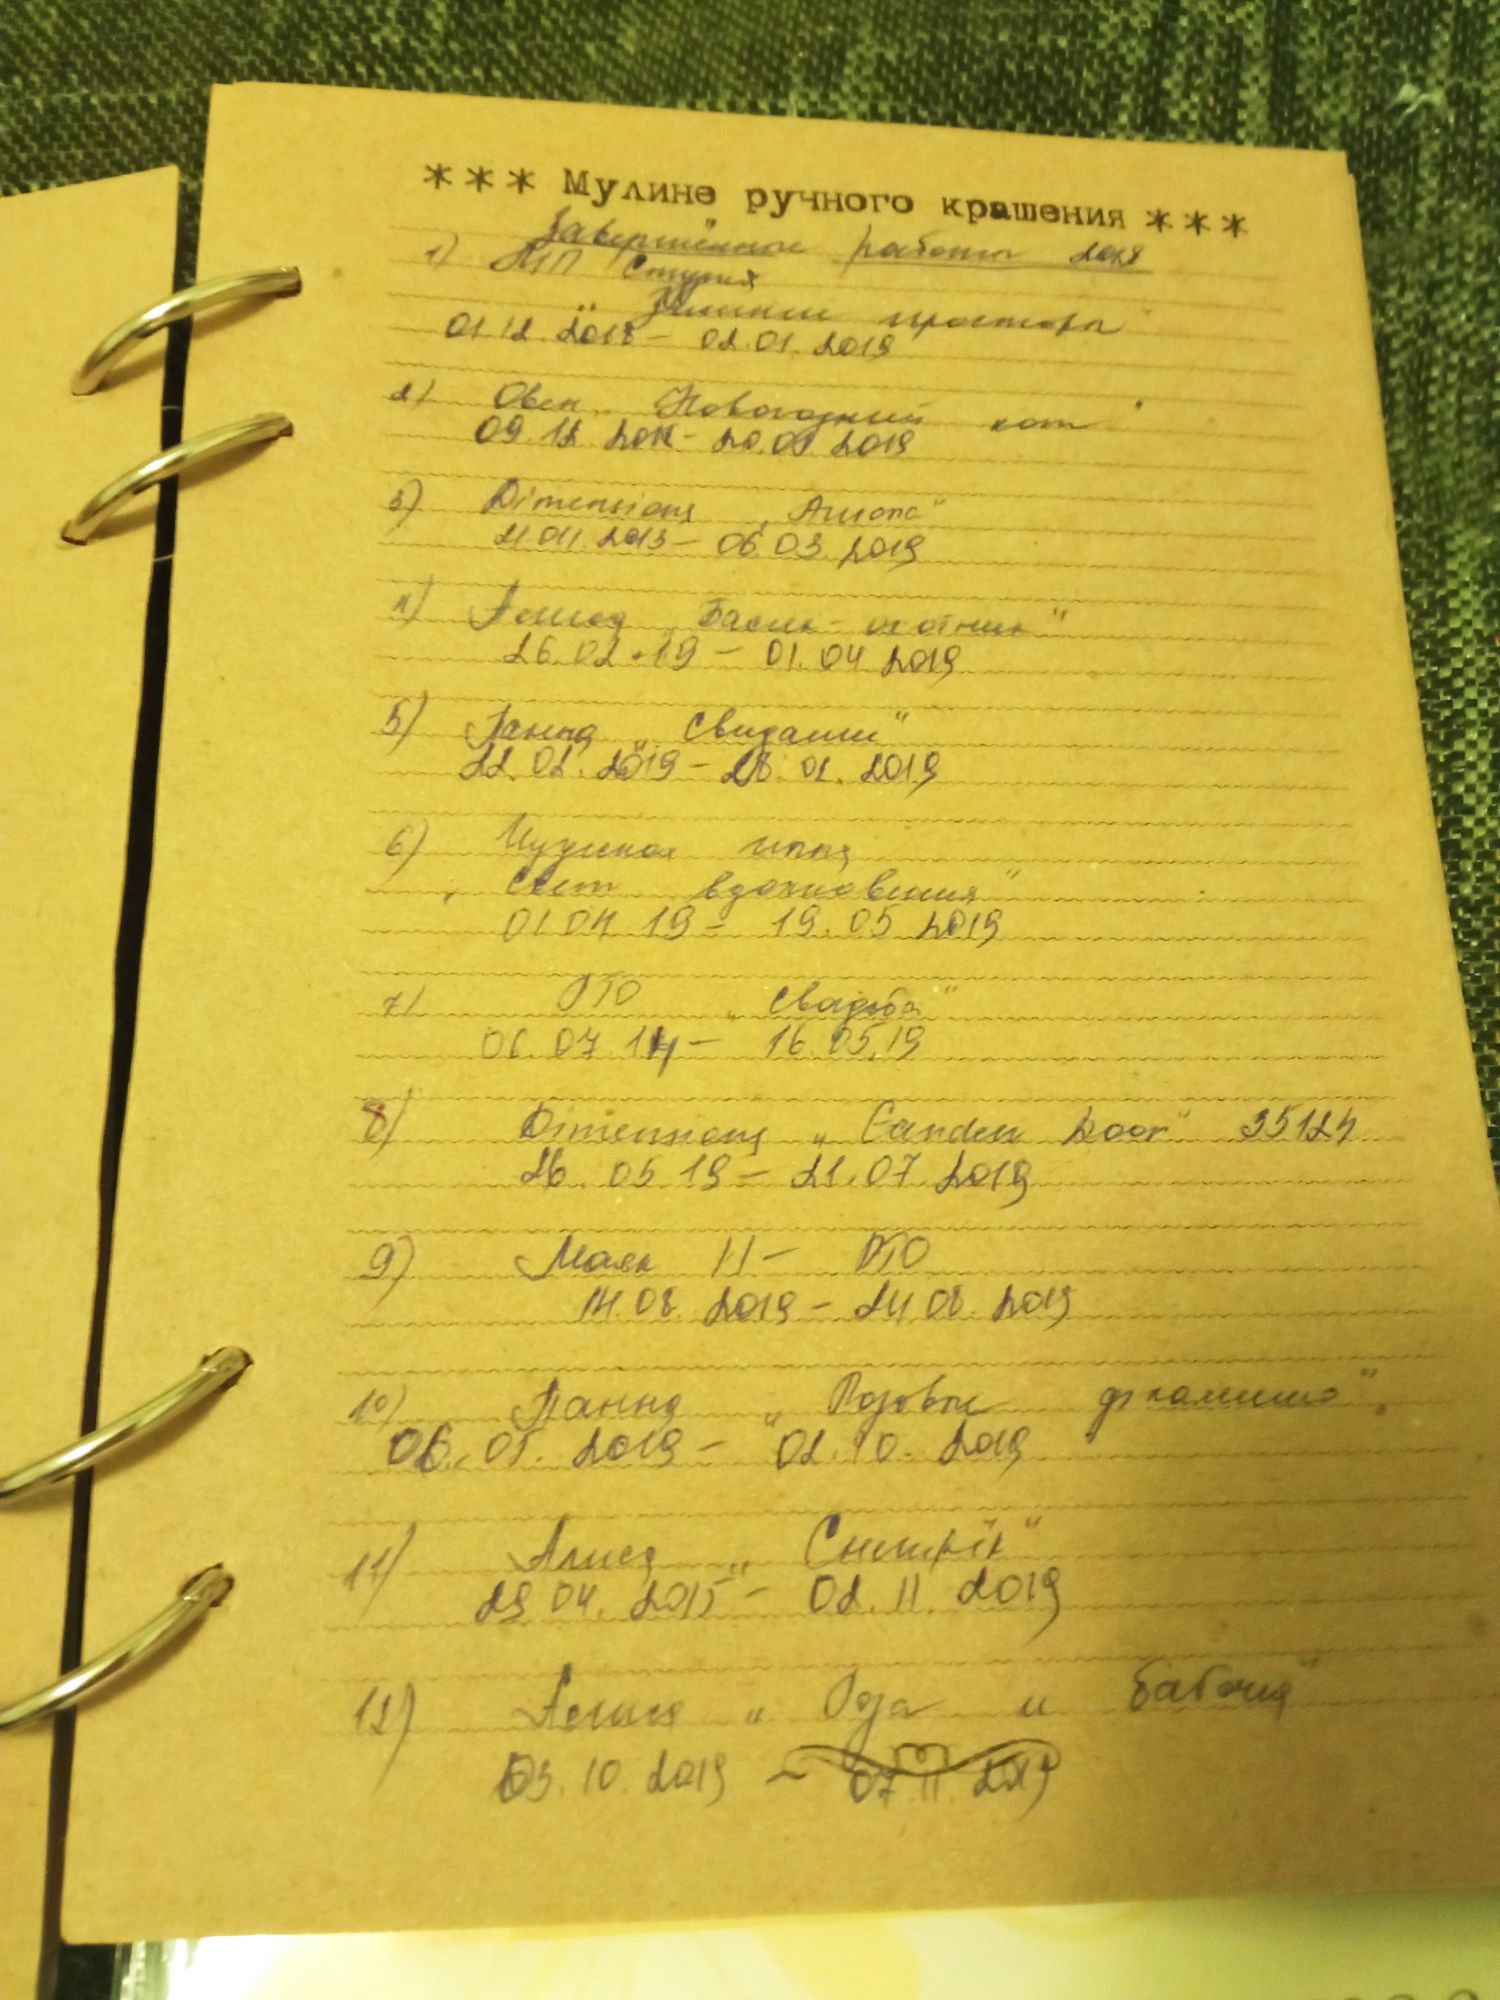 *** Мулине ручного крашения ***
Завершённые работы 2019
1) МП Студия
"Зимние просторы"
01.12.2018 – 02.01.2019
2) Овен "Новогодний кот"
09.12.2018 – 20.01.2019
3) Dimensions "Aurora"
2013 – 06.03.2019
4) Алиса "Басик-охотник"
26.02.19 – 01.04.2019
5) Панна "Свидание"
22.02.2019 – 28.02.2019
6) Чудесная игла
"Свет вдохновения"
01.04.19 – 19.05.2019
7) РТО "Свадьба"
06.07.14 – 16.05.19
8) Dimensions "Garden Door" 35124
26.05.19 – 21.07.2019
9) Маяк II – РТО
14.08.2019 – 24.08.2019
10) Панна "Розовые"
2019 – 02.10.2019
11) Алиса "Снегирёк"
29.04.2015 – 02.11.2019
12) Алиса "Роза и бабочка"
03.10.2019 – 07.11.2019